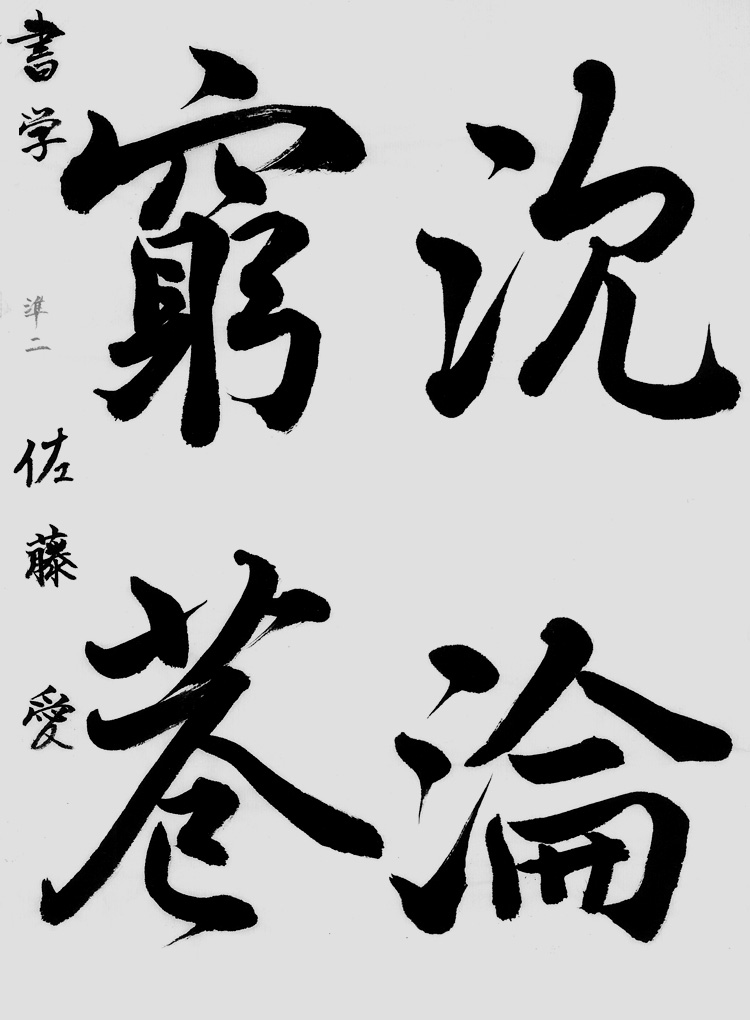 沈淪
窮巷
書学 準二 佐藤愛